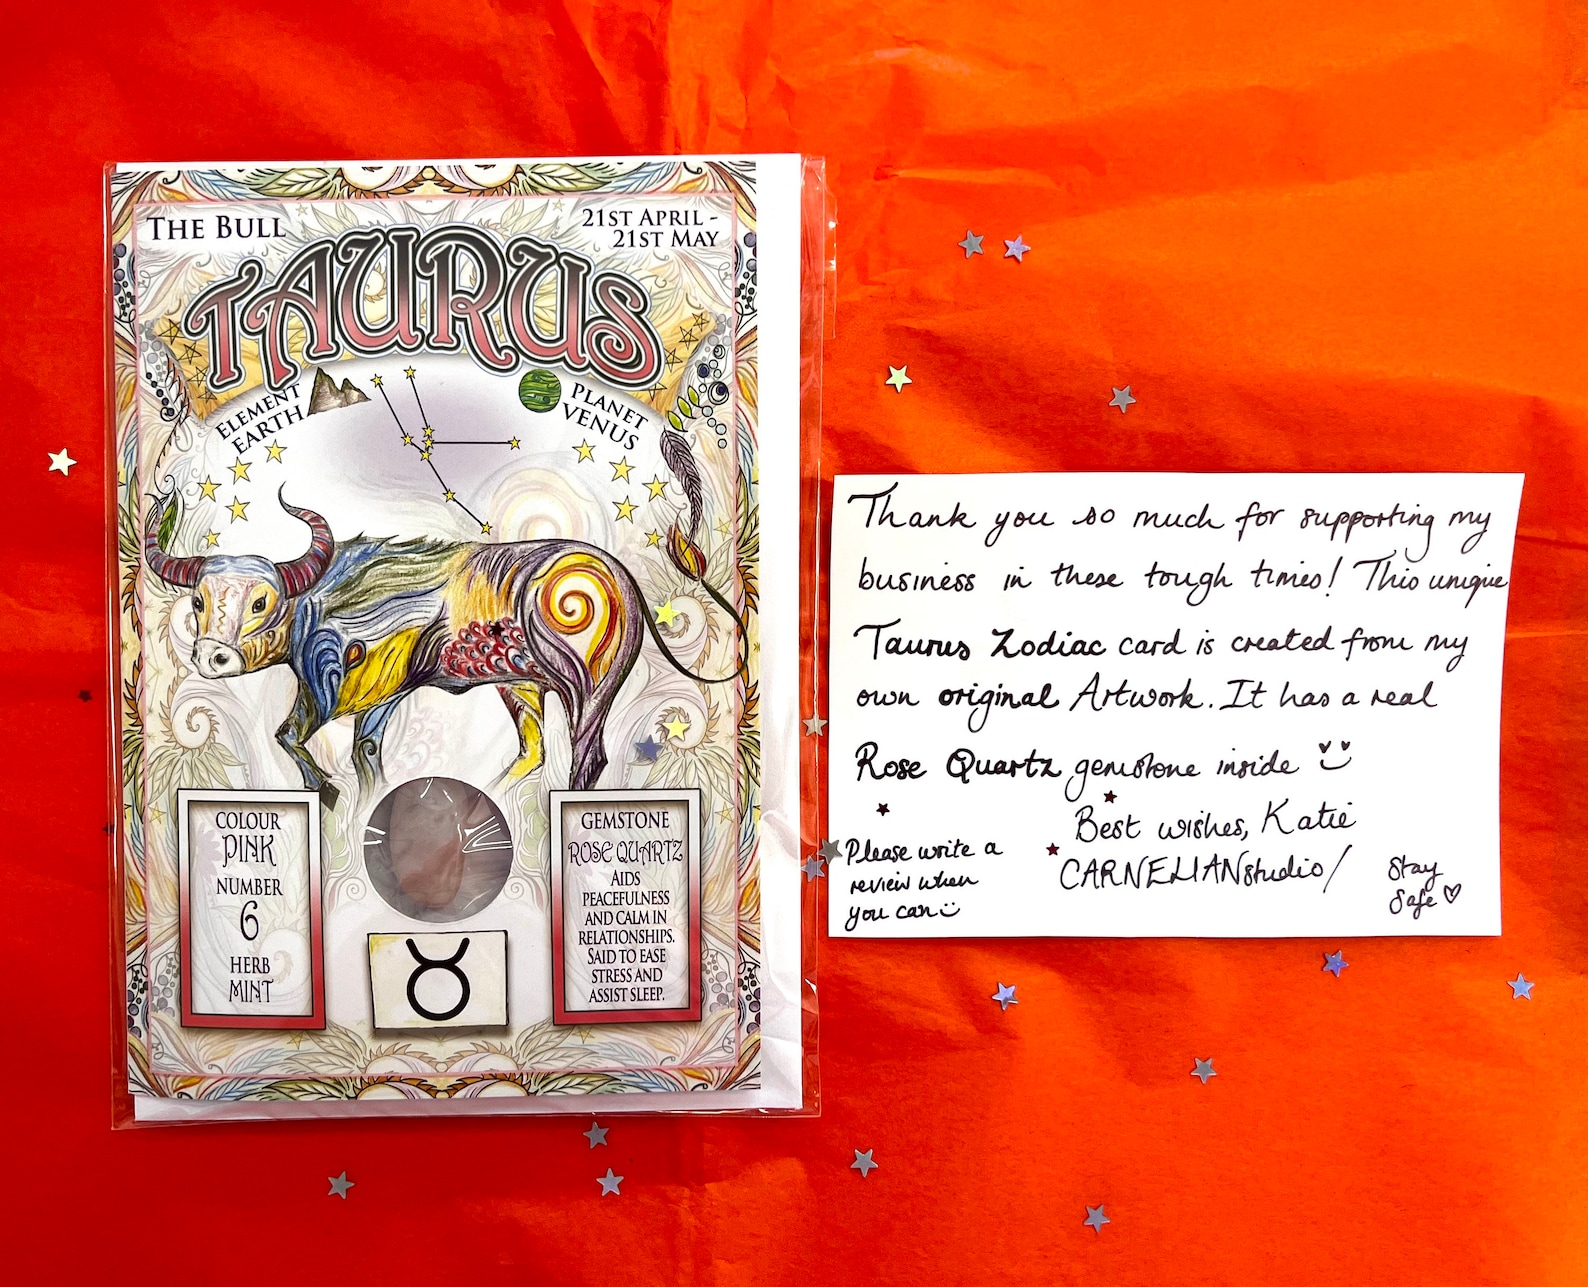 THE BULL
21ST APRIL -
21ST MAY
TAURUS
ELEMENT
EARTH
PLANET
VENUS
COLOUR
PINK
NUMBER
6
HERB
MINT
GEMSTONE
ROSE QUARTZ
AIDS
PEACEFULNESS
AND CALM IN
RELATIONSHIPS.
SAID TO EASE
STRESS AND
ASSIST SLEEP.
Thank you so much for supporting my
business in these tough times! This unique
Taurus Zodiac card is created from my
own original Artwork. It has a real
Rose Quartz gemstone inside
Best wishes, Katie
CARNELIANstudio/
Please write a
review when
you can
Stay
Safe